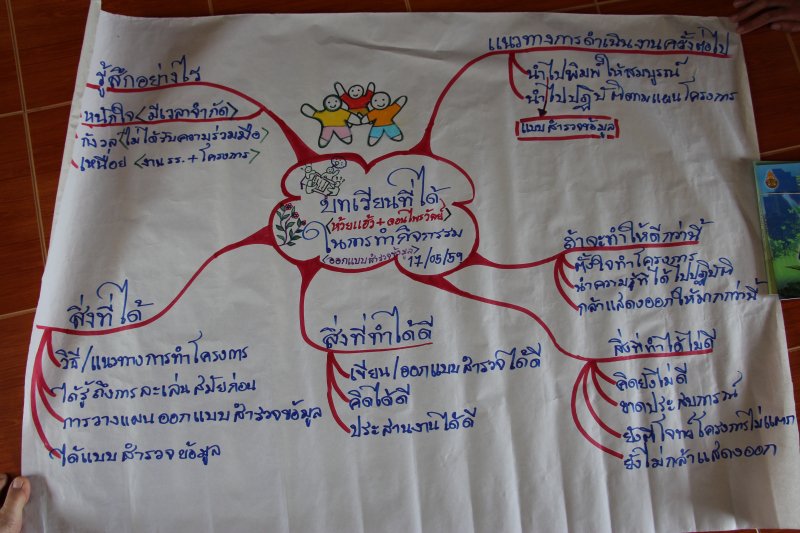 บทเรียนที่ได้
<ห้วยแฮ้ว + ดอนไพรวัลย์>
ในการทำกิจกรรม
<ออกแบบสำรวจข้อมูล> 17/05/59
รู้สึกอย่างไร
หนักใจ <มีเวลาจำกัด>
กังวล <ไม่ได้รับความร่วมมือ>
เหนื่อย <งาน รร. + โครงการ>
แนวทางการดำเนินงานครั้งต่อไป
นำไปพิมพ์ให้สมบูรณ์
นำไปปฏิบัติตามแผนโครงการ
แบบสำรวจข้อมูล
ถ้าจะทำให้ดีกว่านี้
ตั้งใจทำโครงการ
นำความรู้ที่ได้ไปปฏิบัติ
กล้าแสดงออกให้มากกว่านี้
สิ่งที่ทำได้ไม่ดี
คิดยังไม่ดี
ขาดประสบการณ์
ยังตีโจทย์โครงการไม่แตก
ยังไม่กล้าแสดงออก
สิ่งที่ทำได้ดี
เขียน/ออกแบบสำรวจได้ดี
คิดได้ดี
ประสานงานได้ดี
สิ่งที่ได้
วิธี/แนวทางการทำโครงการ
ได้รู้ถึงการละเล่นสมัยก่อน
การวางแผนออกแบบสำรวจข้อมูล
ได้แบบสำรวจข้อมูล